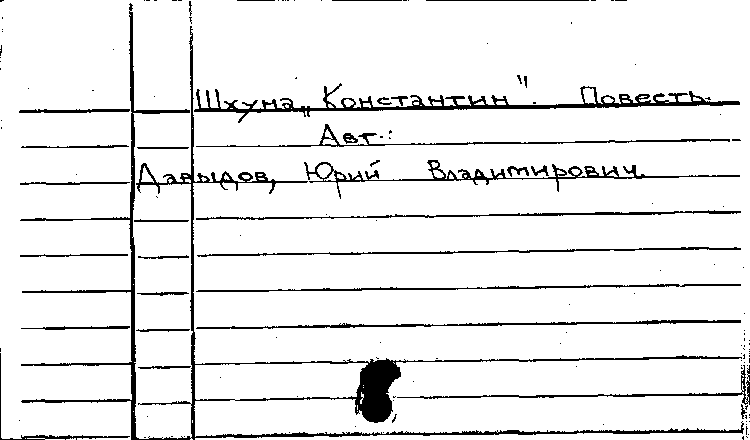 Шхуна „Константин". Повесть.
Авт.:
Давыдов, Юрий Владимирович.